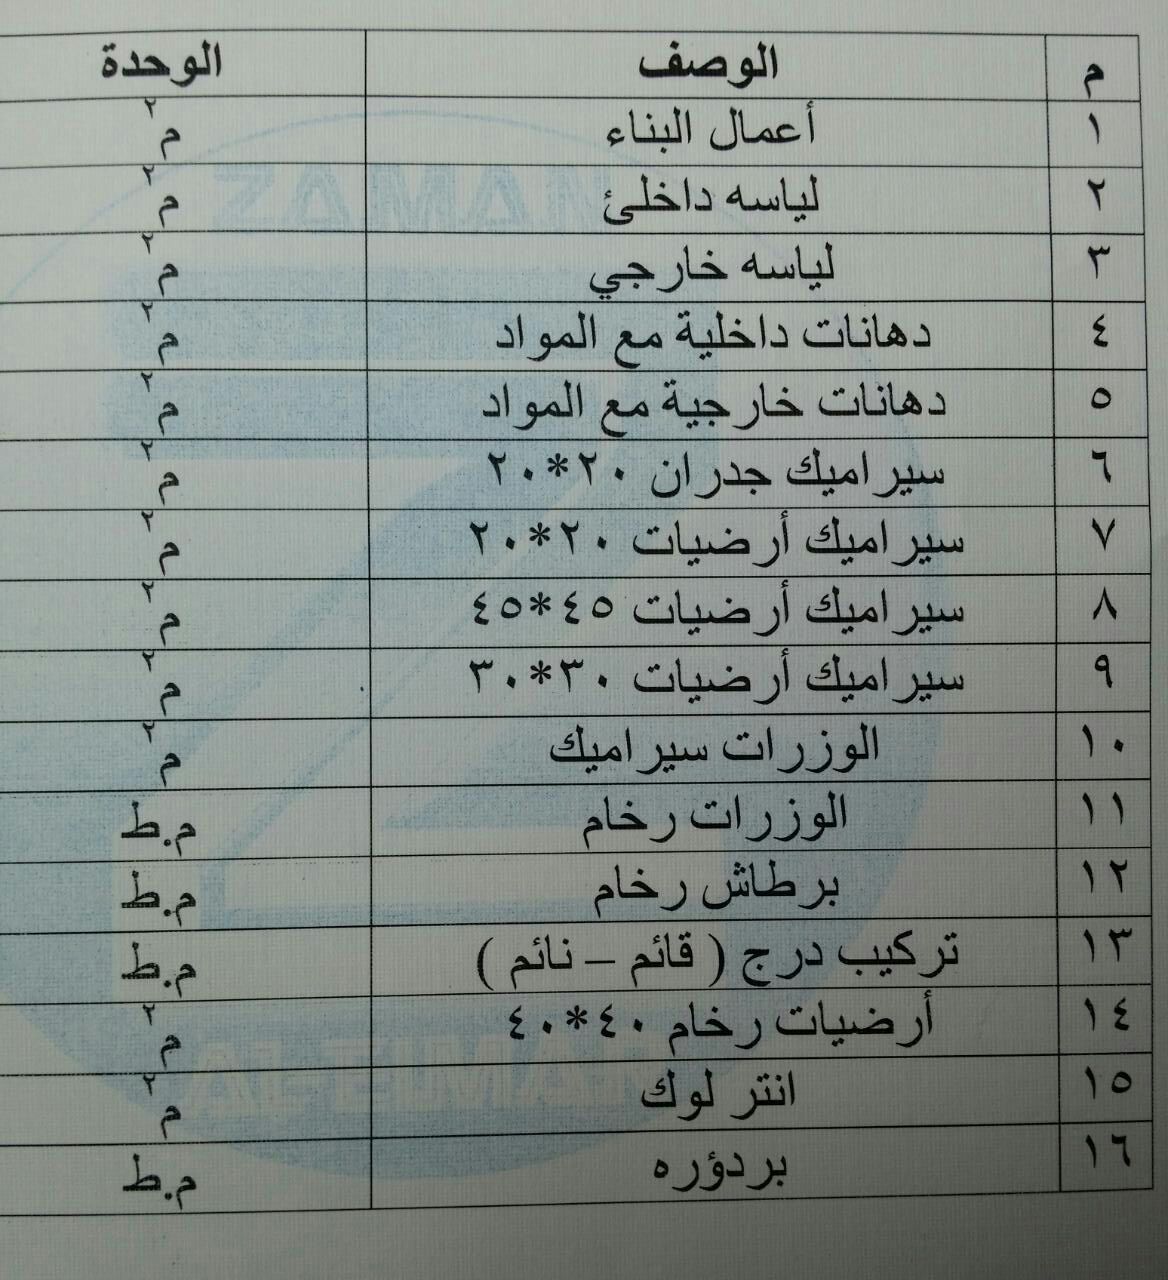 م الوصف الوحدة
١ أعمال البناء م٢
٢ لياسه داخلئ م٢
٣ لياسه خارجي م٢
٤ دهانات داخلية مع المواد م٢
٥ دهانات خارجية مع المواد م٢
٦ سيراميك جدران ٢٠*٢٠ م٢
٧ سيراميك أرضيات ٢٠*٢٠ م٢
٨ سيراميك أرضيات ٤٥*٤٥ م٢
٩ سيراميك أرضيات ٣٠*٣٠ م٢
١٠ الوزرات سيراميك م٢
١١ الوزرات رخام م.ط
١٢ برطاش رخام م.ط
١٣ تركيب درج ( قائم – نائم ) م.ط
١٤ أرضيات رخام ٤٠*٤٠ م٢
١٥ انتر لوك م٢
١٦ بردؤره م.ط